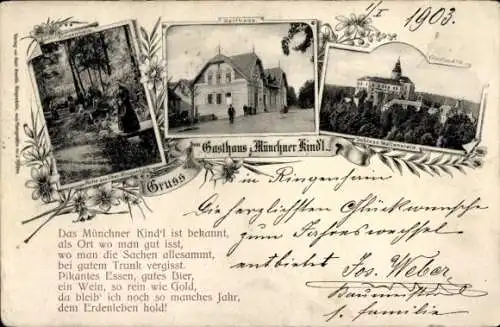 1/I 1903.
Gasthaus
Gruss
vom Gasthaus z. Münchner Kindl.
in Ringenhain
Die herzlichsten Glückwünsche
zum Jahreswechsel
entbietet Jos. Weber
Baumeister
s. Familie
Das Münchner Kind'l ist bekannt,
als Ort wo man gut isst,
wo man die Sachen allesammt,
bei gutem Trunk vergisst.
Pikantes Essen, gutes Bier,
ein Wein, so rein wie Gold,
da bleib' ich noch so manches Jahr,
dem Erdenleben hold!